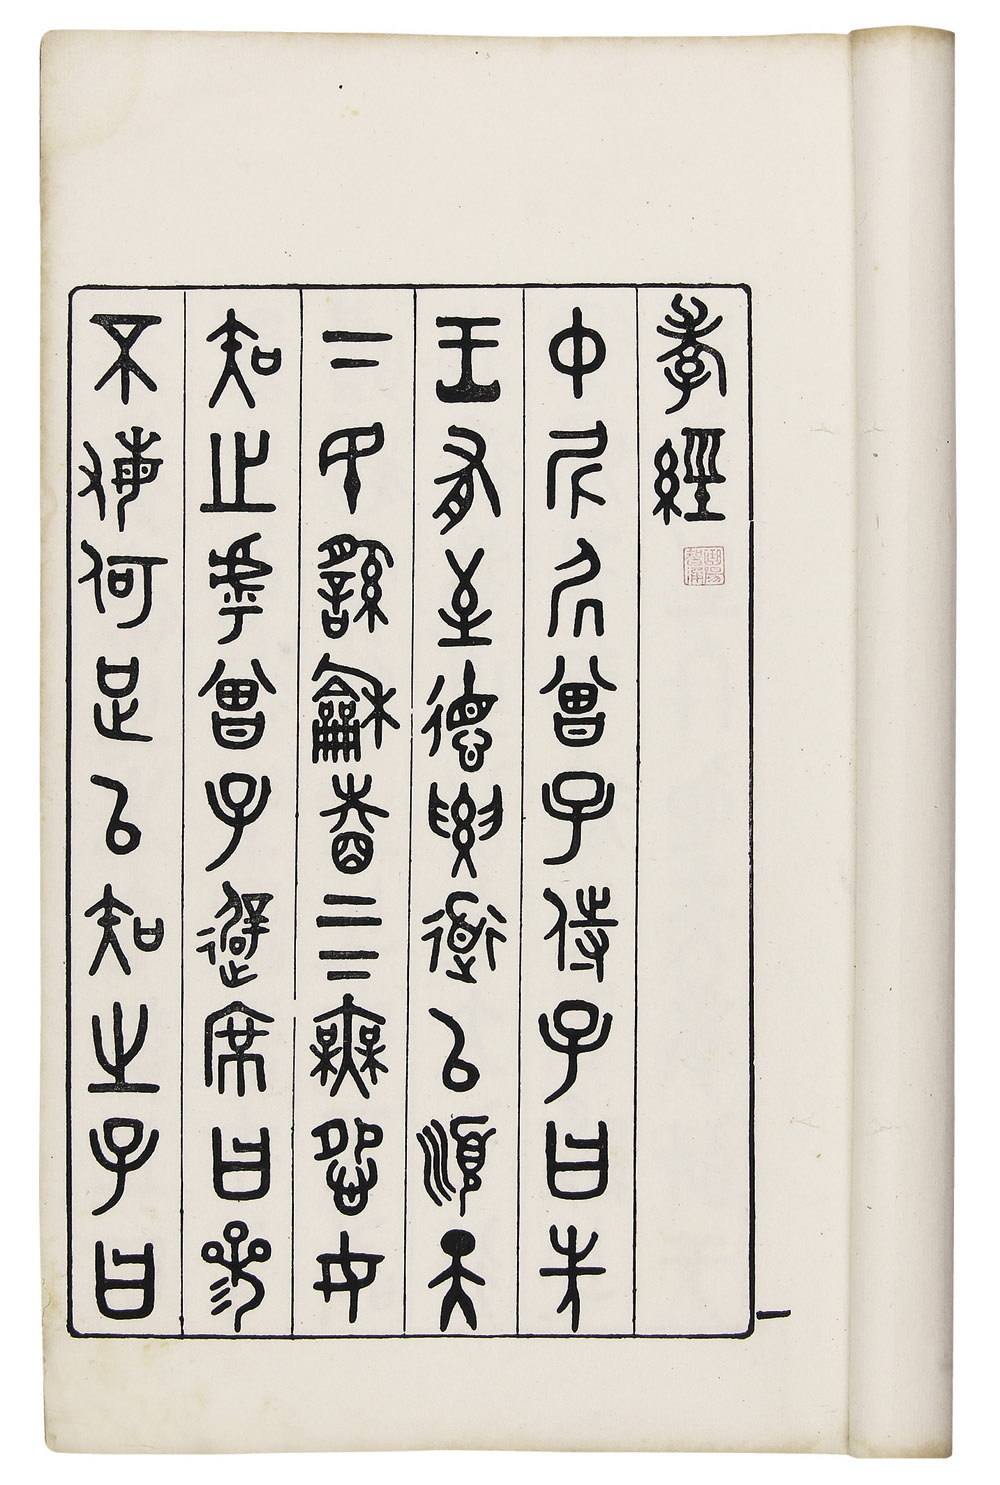 孝經
中尼凥曾子侍子曰先
王有至德要道以順天
下民繇龢睦上下無怨女
知之乎曾子避席曰參
不敏何足以知之子曰
一